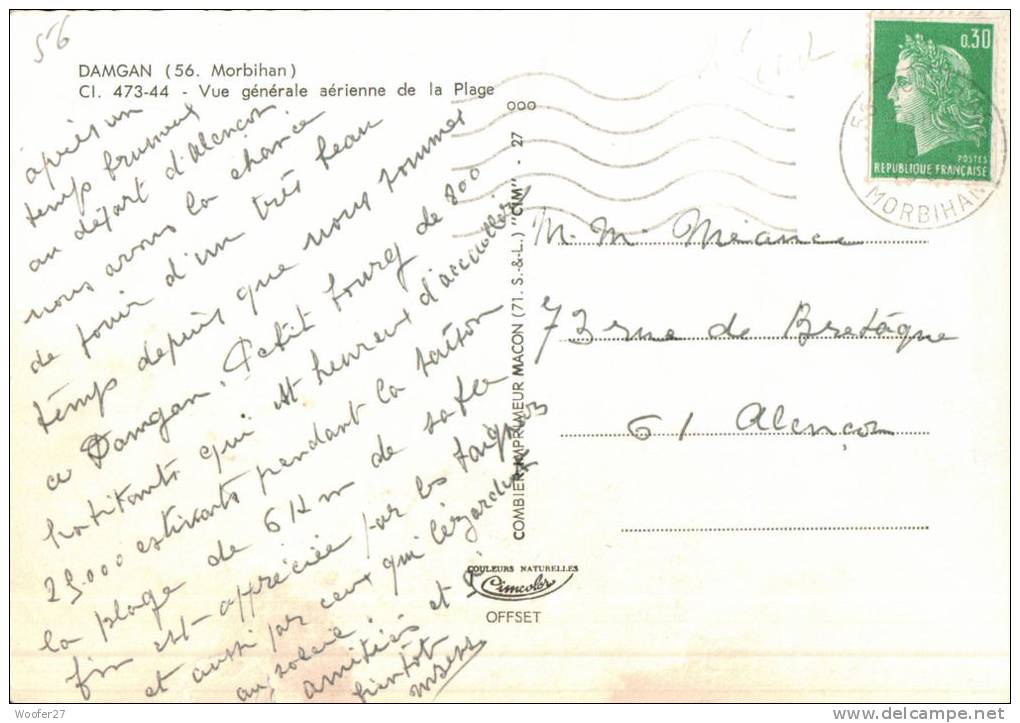 56
DAMGAN (56. Morbihan)
CI. 473-44 - Vue générale aérienne de la Plage
après un
temps brumeux
au départ d'Alençon
nous avons la chance
de jouir d'un très beau
temps depuis que nous sommes
a Damgan. Petit bourg de 800
habitants qui est heureux d'accueillir
25.000 estivants pendant la saison
la plage de 6 Km de sable
fin est appréciée par les
et aussi par ceux qui lézardent
au soleil.
amitiés et à
bientôt
COMBIER IMPRIMEUR MACON (71. S.-&-L.) "CIM" - 27
ooo
COULEURS NATURELLES
Cimcolor
OFFSET
0.30
POSTES
REPUBLIQUE FRANÇAISE
MORBIHAN
M. Mme Méance
73 rue de Bretagne
61 Alençon
Woofer27
delcampe.net